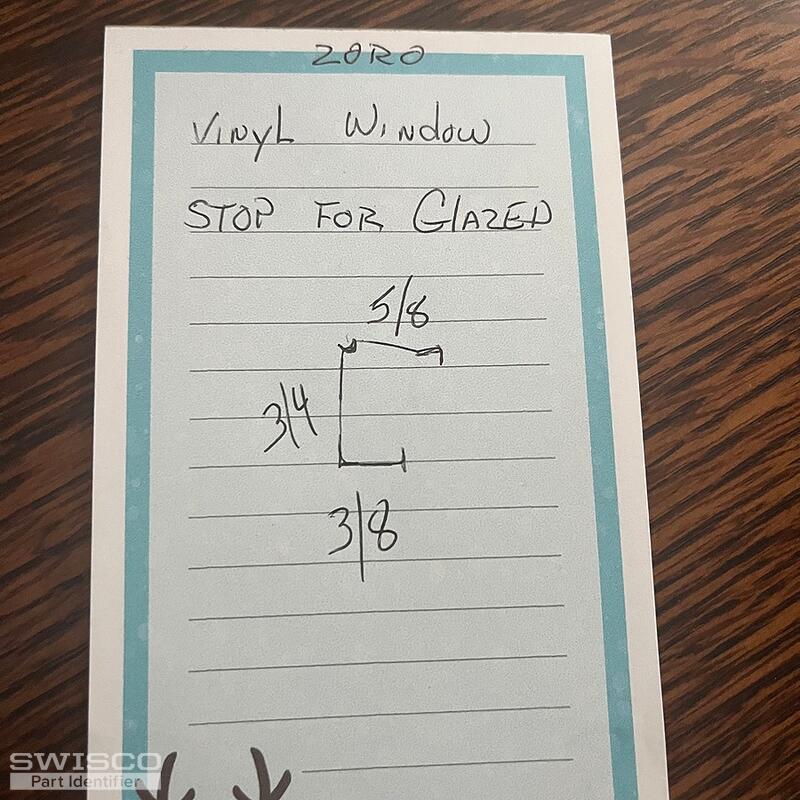 ZORO
Vinyl Window
STOP FOR GLAZED
5/8
3/4
3/8
SWISCO
Part Identifier